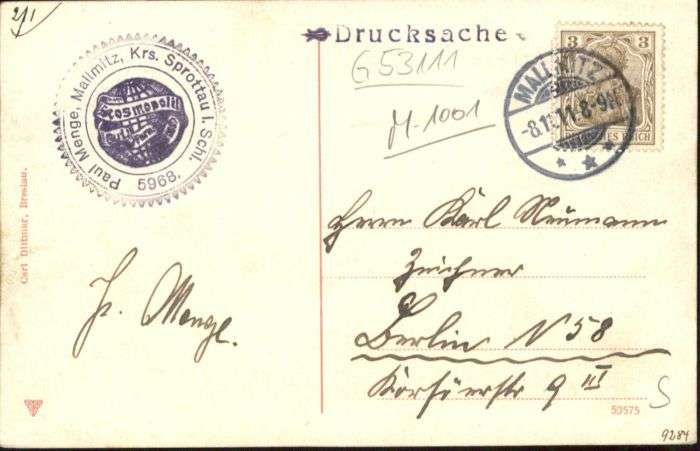 2/1
Drucksache
G 53111
M-1001
Paul Menge, Mallmitz, Krs. Sprottau i. Schl.
5968.
Kosmopolit
3 3
REICH
MALLMITZ
-8.11.11.8-9
Herrn Karl Neumann
Zeichner
Berlin N 58
9 III
P. Menge.
Carl Dittmar, Breslau.
50575
S
9284